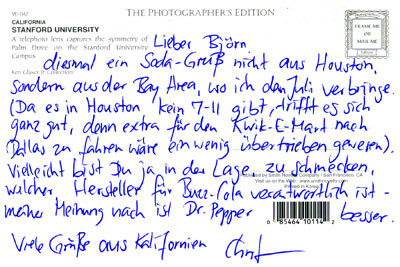 W-042
THE PHOTOGRAPHER'S EDITION
CALIFORNIA
STANFORD UNIVERSITY
A telephoto lens captures the symmetry of
Palm Drive on the Stanford University
Campus.
Ken Glaser Jr. Collection
FRAME ME
OR
MAIL ME
Lieber Björn,
diesmal ein Soda-Gruß nicht aus Houston,
sondern aus der Bay Area, wo ich den Juli verbringe.
(Da es in Houston kein 7-11 gibt, trifft es sich
ganz gut, denn extra für den Kwik-E-Mart nach
Dallas zu fahren wäre ein wenig übertrieben gewesen).
Vielleicht bist Du ja in der Lage zu schmecken,
welcher Hersteller für Buzz-Cola verantwortlich ist -
meiner Meinung nach ist Dr. Pepper besser.
Viele Grüße aus Kalifornien
Published by Smith Novelty Company / San Francisco, CA
Printed in Korea
0 85464 10114 2